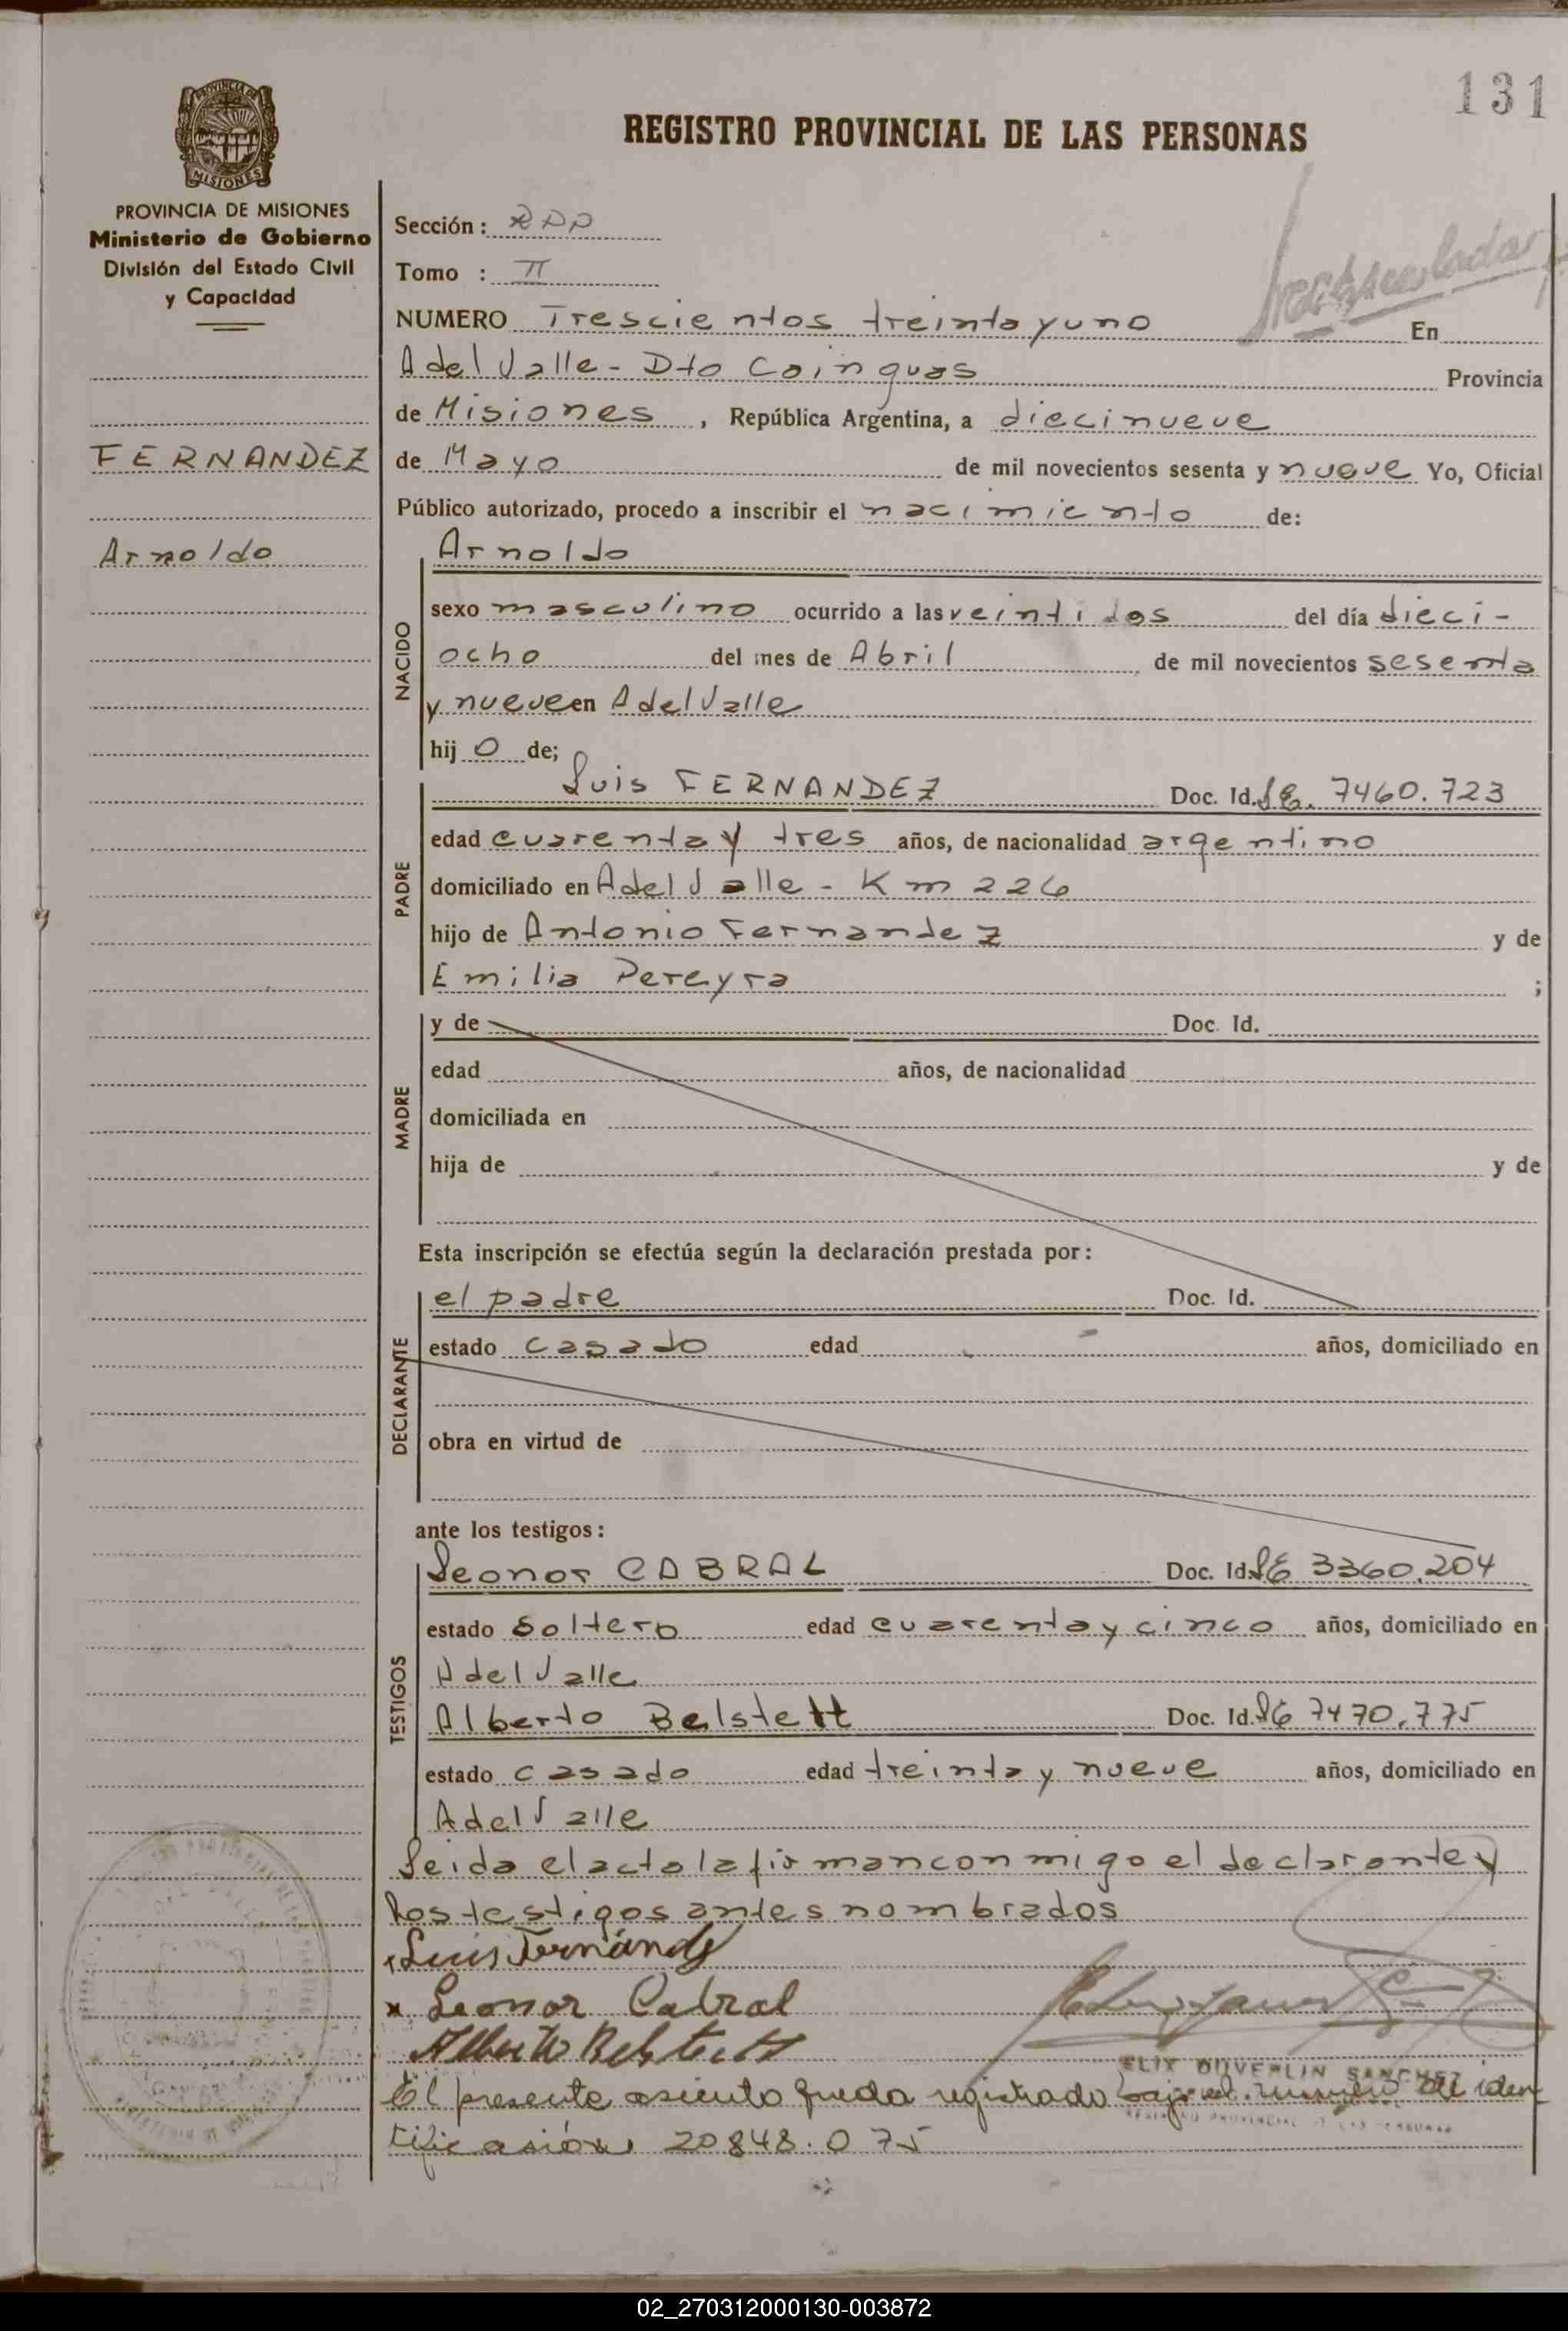 131
PROVINCIA DE
MISIONES
REGISTRO PROVINCIAL DE LAS PERSONAS
PROVINCIA DE MISIONES
Ministerio de Gobierno
División del Estado Civil
y Capacidad
FERNANDEZ
Arnoldo
Sección: RDP
Tomo : II
NUMERO Trescientos treinta y uno En
A del Valle - Dto Cainguas Provincia
de Misiones , República Argentina, a diecinueve
de Mayo de mil novecientos sesenta y nueve Yo, Oficial
Público autorizado, procedo a inscribir el nacimiento de:
NACIDO
Arnoldo
sexo masculino ocurrido a las veintidos del día dieci-
ocho del mes de Abril de mil novecientos sesenta
y nueve en A del Valle
hij o de;
PADRE
Luis FERNANDEZ Doc. Id. LE. 7460.723
edad cuarenta y tres años, de nacionalidad argentino
domiciliado en A del Valle - Km 226
hijo de Antonio Fernandez y de
Emilia Pereyra ;
MADRE
y de Doc. Id.
edad años, de nacionalidad
domiciliada en
hija de y de
Esta inscripción se efectúa según la declaración prestada por:
DECLARANTE
el padre Doc. Id.
estado casado edad años, domiciliado en
obra en virtud de
ante los testigos:
TESTIGOS
Leonor CABRAL Doc. Id. LE 3360.204
estado Soltero edad cuarenta y cinco años, domiciliado en
A del Valle
Alberto Belstett Doc. Id. LE 7470.775
estado casado edad treinta y nueve años, domiciliado en
A del Valle
Leida el acta la firman conmigo el declarante y
los testigos antes nombrados
Luis Fernández
x Leonor Cabral
Alberto Belstett
ELIX DUVERLIN SANCHEZ
El presente asiento queda registrado bajo el numero de iden
tificasión 20848.075
02_270312000130-003872